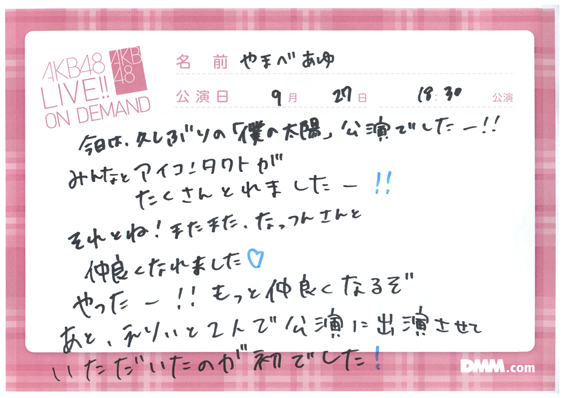 AKB48
LIVE!!
ON DEMAND
AKB
48
名前 やまべあゆ
公演日 9月 27日 18:30 公演
今日は、久しぶりの「僕の太陽」公演でしたー!!
みんなとアイコンタクトが
たくさんとれましたー!!
それとね!またまた、なっつんさんと
仲良くなれました♡
やったー!!もっと仲良くなるぞ
あと、りいと2人で公演に出演させて
いただいたのが初でした!
DMM.com